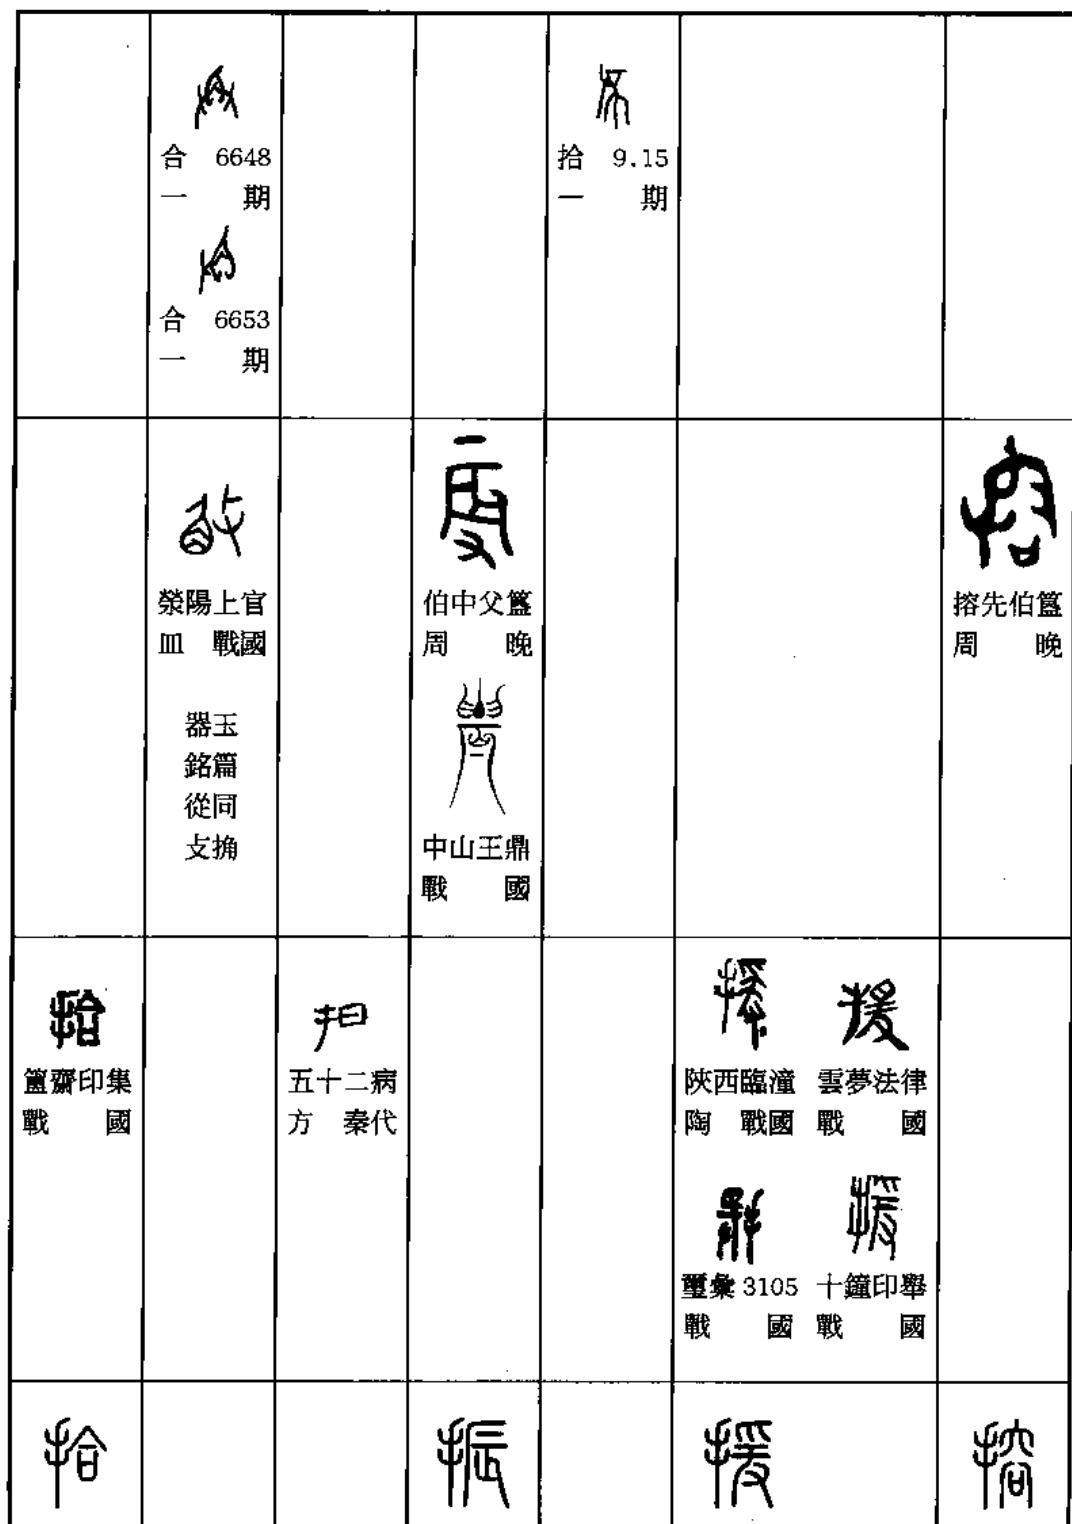 合 6648
一 期
合 6653
一 期
拾 9.15
一 期
滎陽上官
皿 戰國
器玉
銘篇
從同
攴捔
伯中父簋
周 晚
中山王鼎
戰 國
搈先伯簋
周 晚
拾
簠齋印集
戰 國
抇
五十二病
方 秦代
陝西臨潼
陶 戰國
援
雲夢法律
戰 國
璽彙 3105
戰 國
十鐘印舉
戰 國
拾
振
援
搈